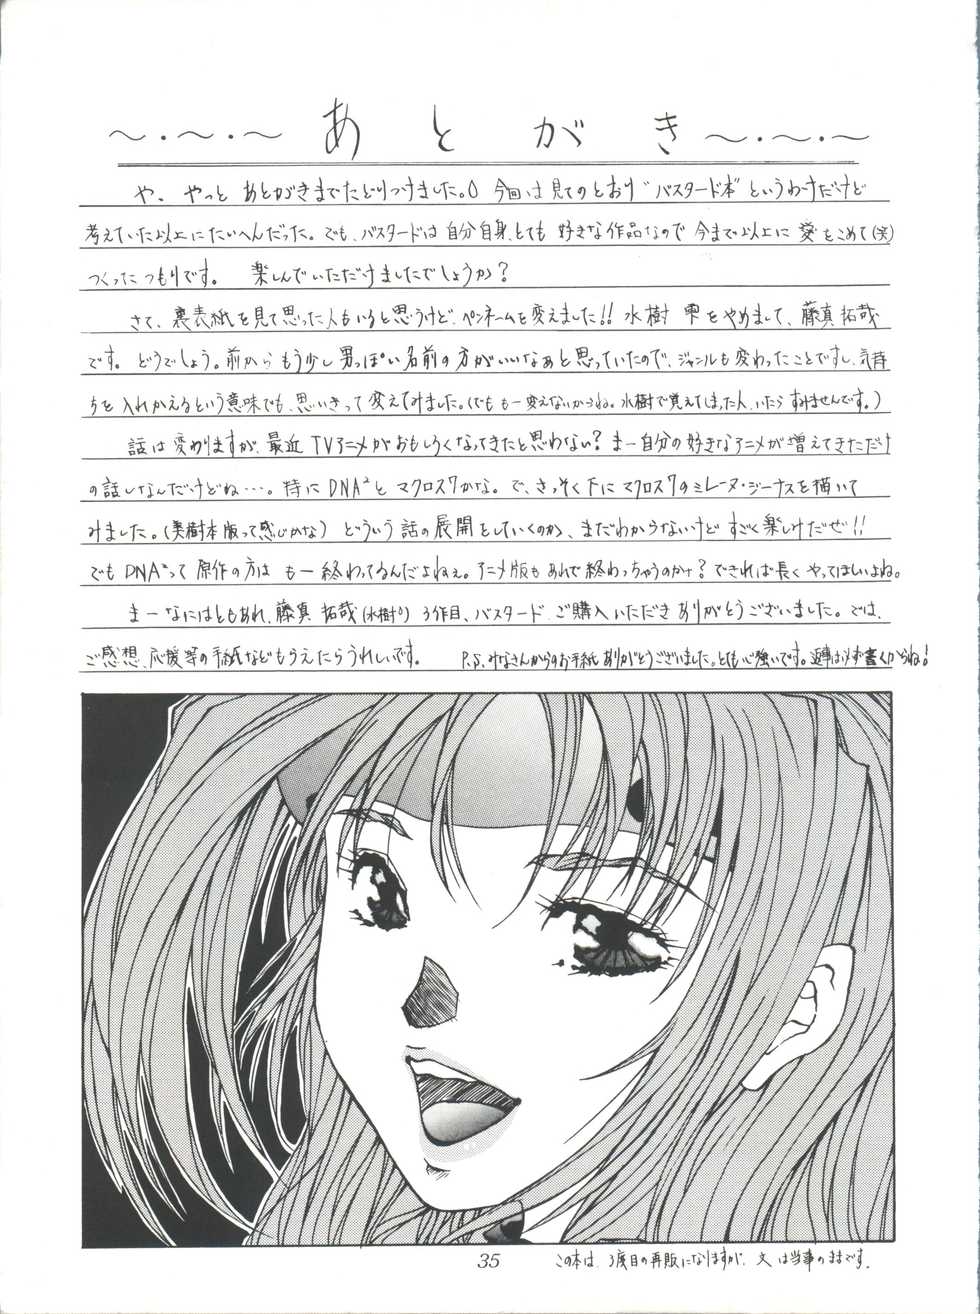 ～・～・～ あとがき ～・～・～
や、やっと あとがきまでたどりつけました。今回は見てのとおり"バスタード本"というわけだけど
考えていた以上にたいへんだった。でも、バスタードは自分自身、とても好きな作品なので今まで以上に愛をこめて(笑)
つくったつもりです。 楽しんでいただけましたでしょうか?
さて、裏表紙を見て思った人もいると思うけど、ペンネームを変えました!!水樹 雫をやめまして、藤真拓哉
です。どうでしょう。前からもう少し男っぽい名前の方がいいなあと思っていたので、ジャンルも変わったことですし、気持
ちを入れかえるという意味でも、思いきって変えてみました。(でももー変えないからね。水樹で覚えてしまった人、いたらすみませんです。)
話は変わりますが、最近TVアニメがおもしろくなってきたと思わない?まー自分の好きなアニメが増えてきただけ
の話しなんだけどね・・・。特にDNA²とマクロス7かな。で、さっそく下にマクロス7のミレーヌ・ジーナスを描いて
みました。(美樹本版って感じかな) どういう話の展開をしていくのか、まだわからないけどすごく楽しけだぜ!!
でもDNA²って原作の方はもー終わってるんだよねぇ。アニメ版もあれで終わっちゃうのかナ?できれば長くやってほしいよね。
まーなにはともあれ、藤真 拓哉(水樹か)3作目、バスタード ご購入いただきありがとうございました。では、
ご感想、応援等の手紙などもらえたらうれしいです。 P.S.みなさんからのお手紙ありがとうございました。とても心強いです。返事は必ず書くからね!
35
この本は、3度目の再販になりますが、文は当事のままです。